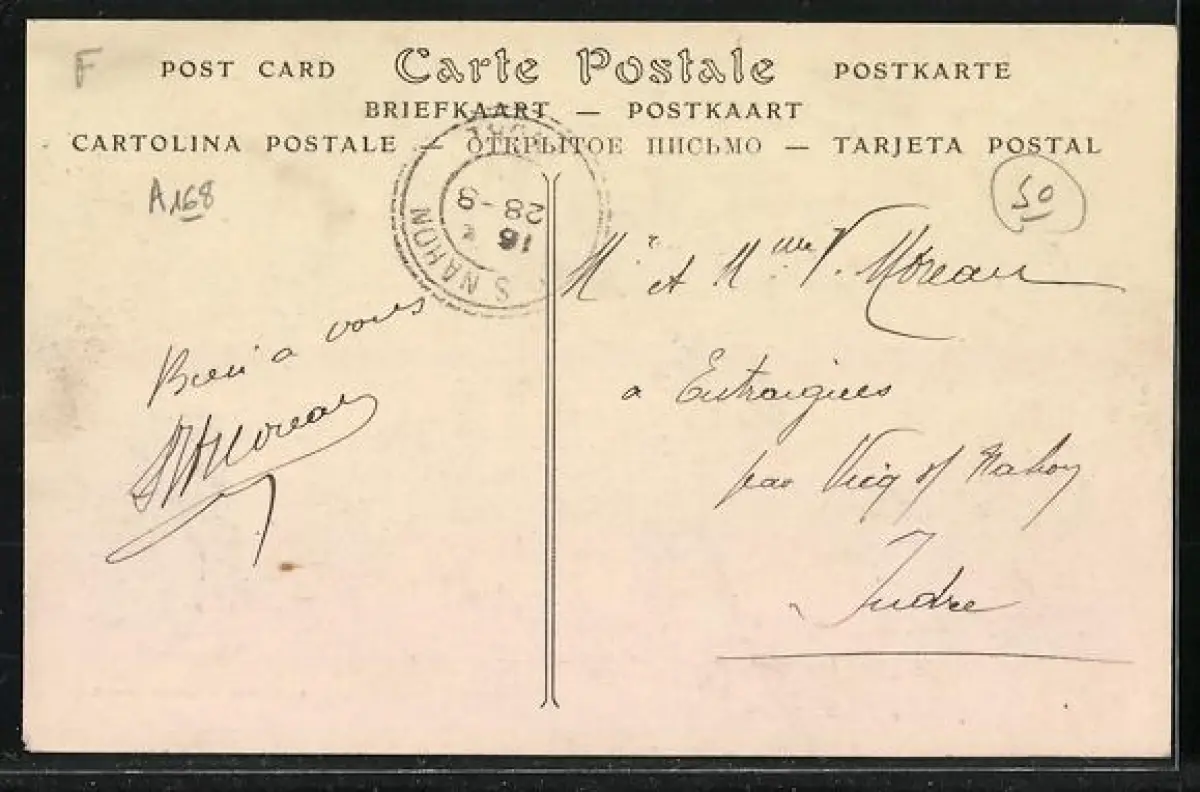 F
POST CARD Carte Postale POSTKARTE
BRIEFKAART — POSTKAART
CARTOLINA POSTALE — ОТКРЫТОЕ ПИСЬМО — TARJETA POSTAL
A168
50
S NAHON
16
28 - 8
Mr et Mme V. Moreau
a Entraigues
par Vicq s/ Nahon
Indre
Bien a vous
Moreau